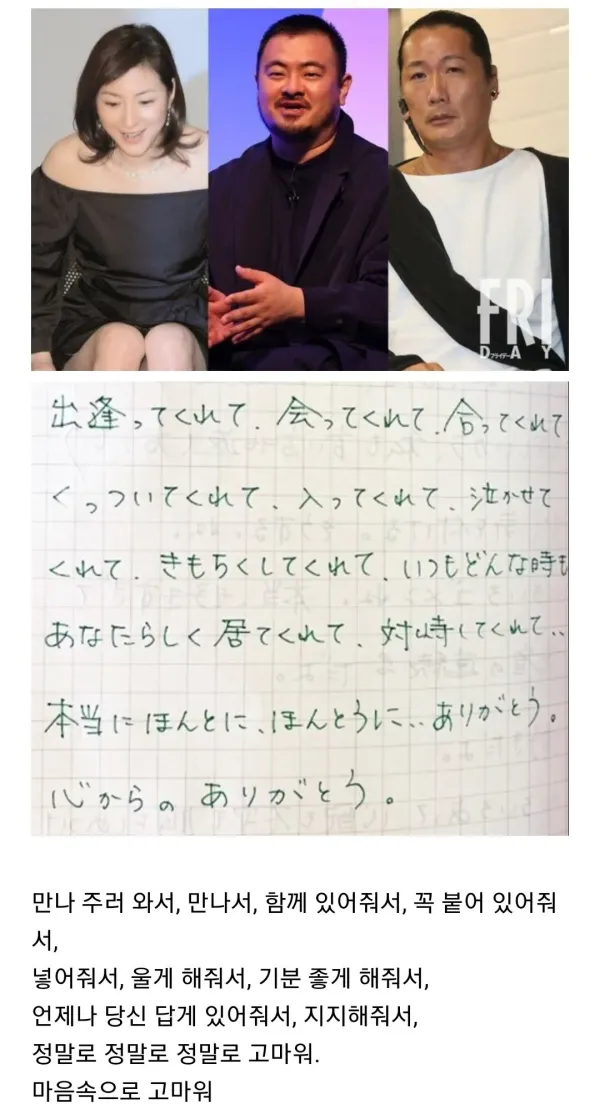 FRI
DAY
フライデー
出逢ってくれて、会ってくれて、合ってくれて
くっついてくれて、入ってくれて、泣かせて
くれて、きもちくしてくれて、いつもどんな時も
あなたらしく居てくれて、対峙してくれて..
本当にほんとに、ほんとうに..ありがとう。
心からの ありがとう。
만나 주러 와서, 만나서, 함께 있어줘서, 꼭 붙어 있어줘
서,
넣어줘서, 울게 해줘서, 기분 좋게 해줘서,
언제나 당신 답게 있어줘서, 지지해줘서,
정말로 정말로 정말로 고마워.
마음속으로 고마워